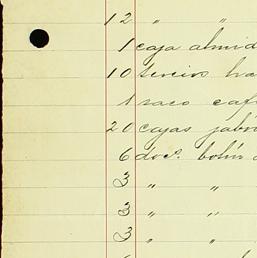 12 " "
1 caja almid
10 tercios
1 saco café
20 cajas jabón
6 doc.s
3 " "
3 " "
3 " "